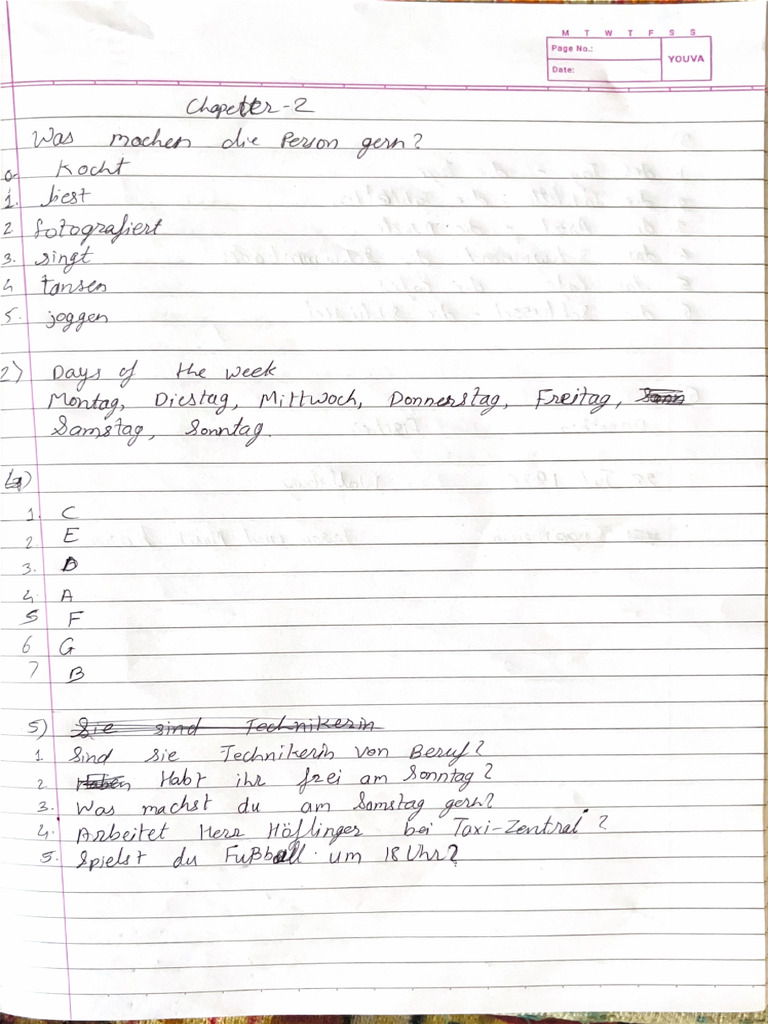 M T W T F S S
Page No.:
YOUVA
Date:
Chapetter-2
Was machen die Person gern?
0. Kocht
1. liest
2 fotografiert
3. singt
4 tansen
5. joggen
2) Days of the week
Montag, Diestag, Mittwoch, Donnerstag, Freitag,
Samstag, Sonntag.
1. C
2. E
3. D
4 A
5 F
6 G
7 B
5) Sie sind Technikerin
1. Sind sie Technikerin von Beruf?
2. Haben Habt ihr frei am Sonntag?
3. Was machst du am Samstag gern?
4. Arbeitet Herr Höflinger bei Taxi-Zentral?
5. Spielst du Fußball um 18 Uhr?